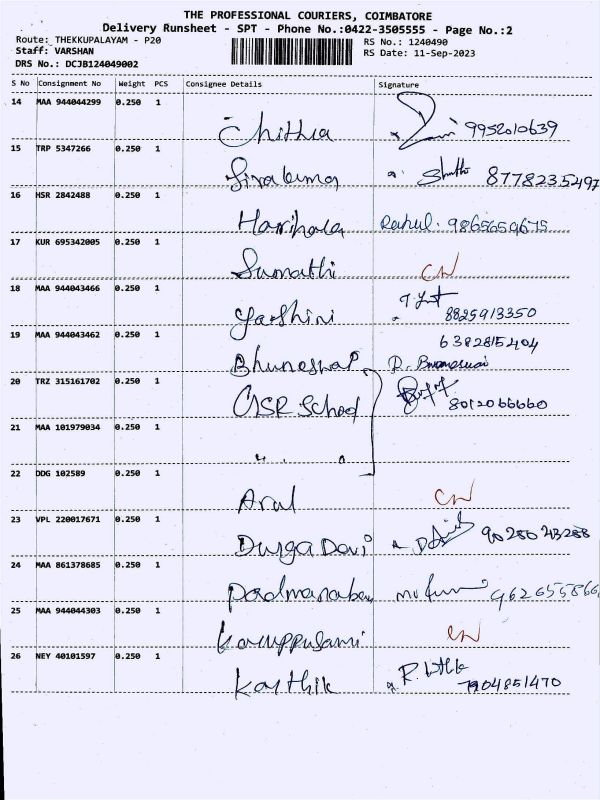 THE PROFESSIONAL COURIERS, COIMBATORE
Delivery Runsheet - SPT - Phone No.:0422-3505555 - Page No.:2
Route: THEKKUPALAYAM - P20 RS No.: 1240490
Staff: VARSHAN RS Date: 11-Sep-2023
DRS No.: DCJB124049002
S No Consignment No Weight PCS Consignee Details Signature
14 MAA 944044299 0.250 1
Chithra 9952010639
15 TRP 5347266 0.250 1
Sivakumar 8778235297
16 HSR 2842488 0.250 1
Harihara Rahul. 9865659675
17 KUR 695342005 0.250 1
Sumathi CN
18 MAA 944043466 0.250 1
Yarshini 8825913350
19 MAA 944043462 0.250 1
6382815404
Bhuneswar
20 TRZ 315161702 0.250 1
CISR School 8012066660
21 MAA 101979034 0.250 1
" "
22 DDG 102589 0.250 1
Arul CN
23 VPL 220017671 0.250 1
Durga Devi
24 MAA 861378685 0.250 1
Padmanaban
25 MAA 944044303 0.250 1
Karuppusami CN
26 NEY 40101597 0.250 1
Karthik 7904851470